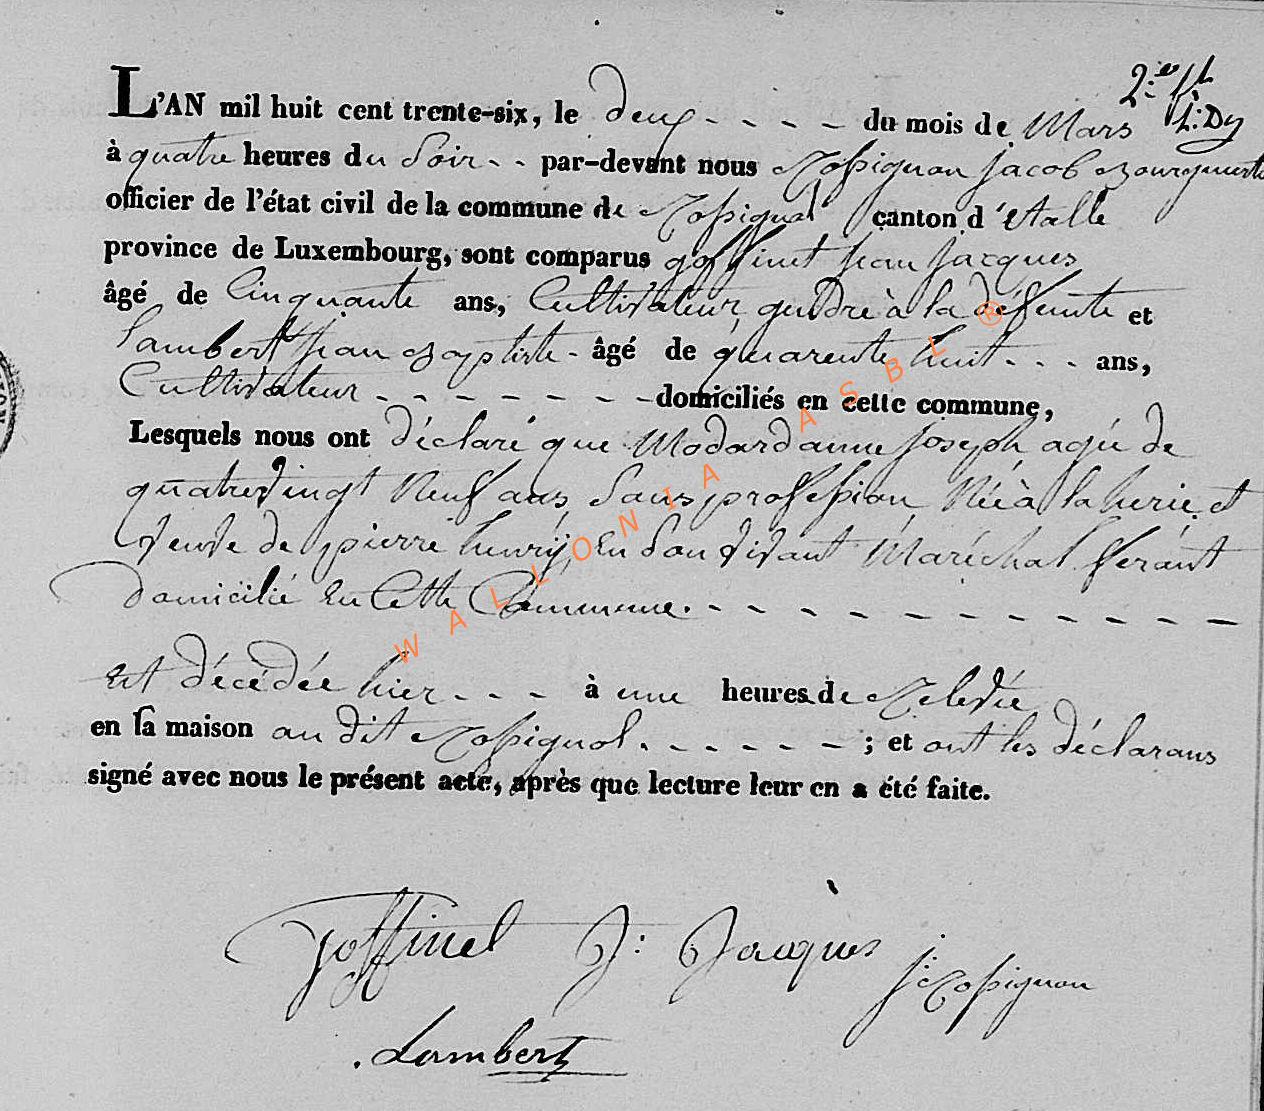 L'AN mil huit cent trente-six, le deux - - - - du mois de Mars
à quatre heures du Soir - - par-devant nous Rossignon Jacob Bourguemestre
officier de l'état civil de la commune de Rossignol canton d'Etalle
province de Luxembourg, sont comparus goffinet jean jacques
âgé de Cinquante ans, Cultivateur, gendre à la défeunte et
Lambert jean Baptiste - âgé de quarente huit - - - ans,
Cultivateur - - - - - - - domiciliés en cette commune,
Lesquels nous ont déclaré que Modard anne joseph agée de
quatrevingt Neuf ans, Sans profession Née à laherie et
Veuve de pierre henrÿ, En Son Vivant Maréchal ferant
domicilié En Cette Commune. - - - - - - - - - - -
Est décédée hier - - - à une heures de Relevée
en sa maison au dit Rossignol. - - - - - ; et ont les déclarans
signé avec nous le présent acte, après que lecture leur en a été faite.
Goffinet J: Jacques
j: Rossignon
Lambert
WALLONIA ASBL ®